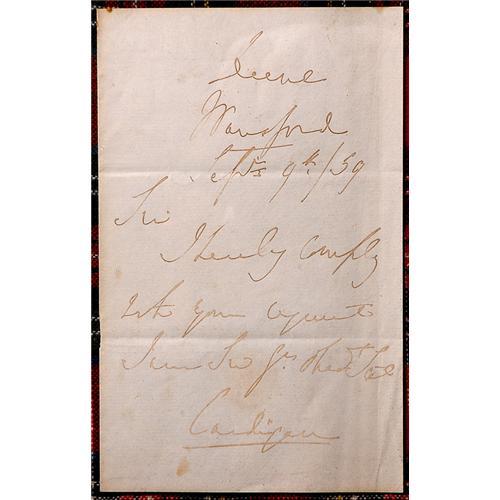 Deene
Wansford
Septr 9th/59
Sir
I hereby comply
with your request
I am Sir yrs Obedt Svt
Cardigan